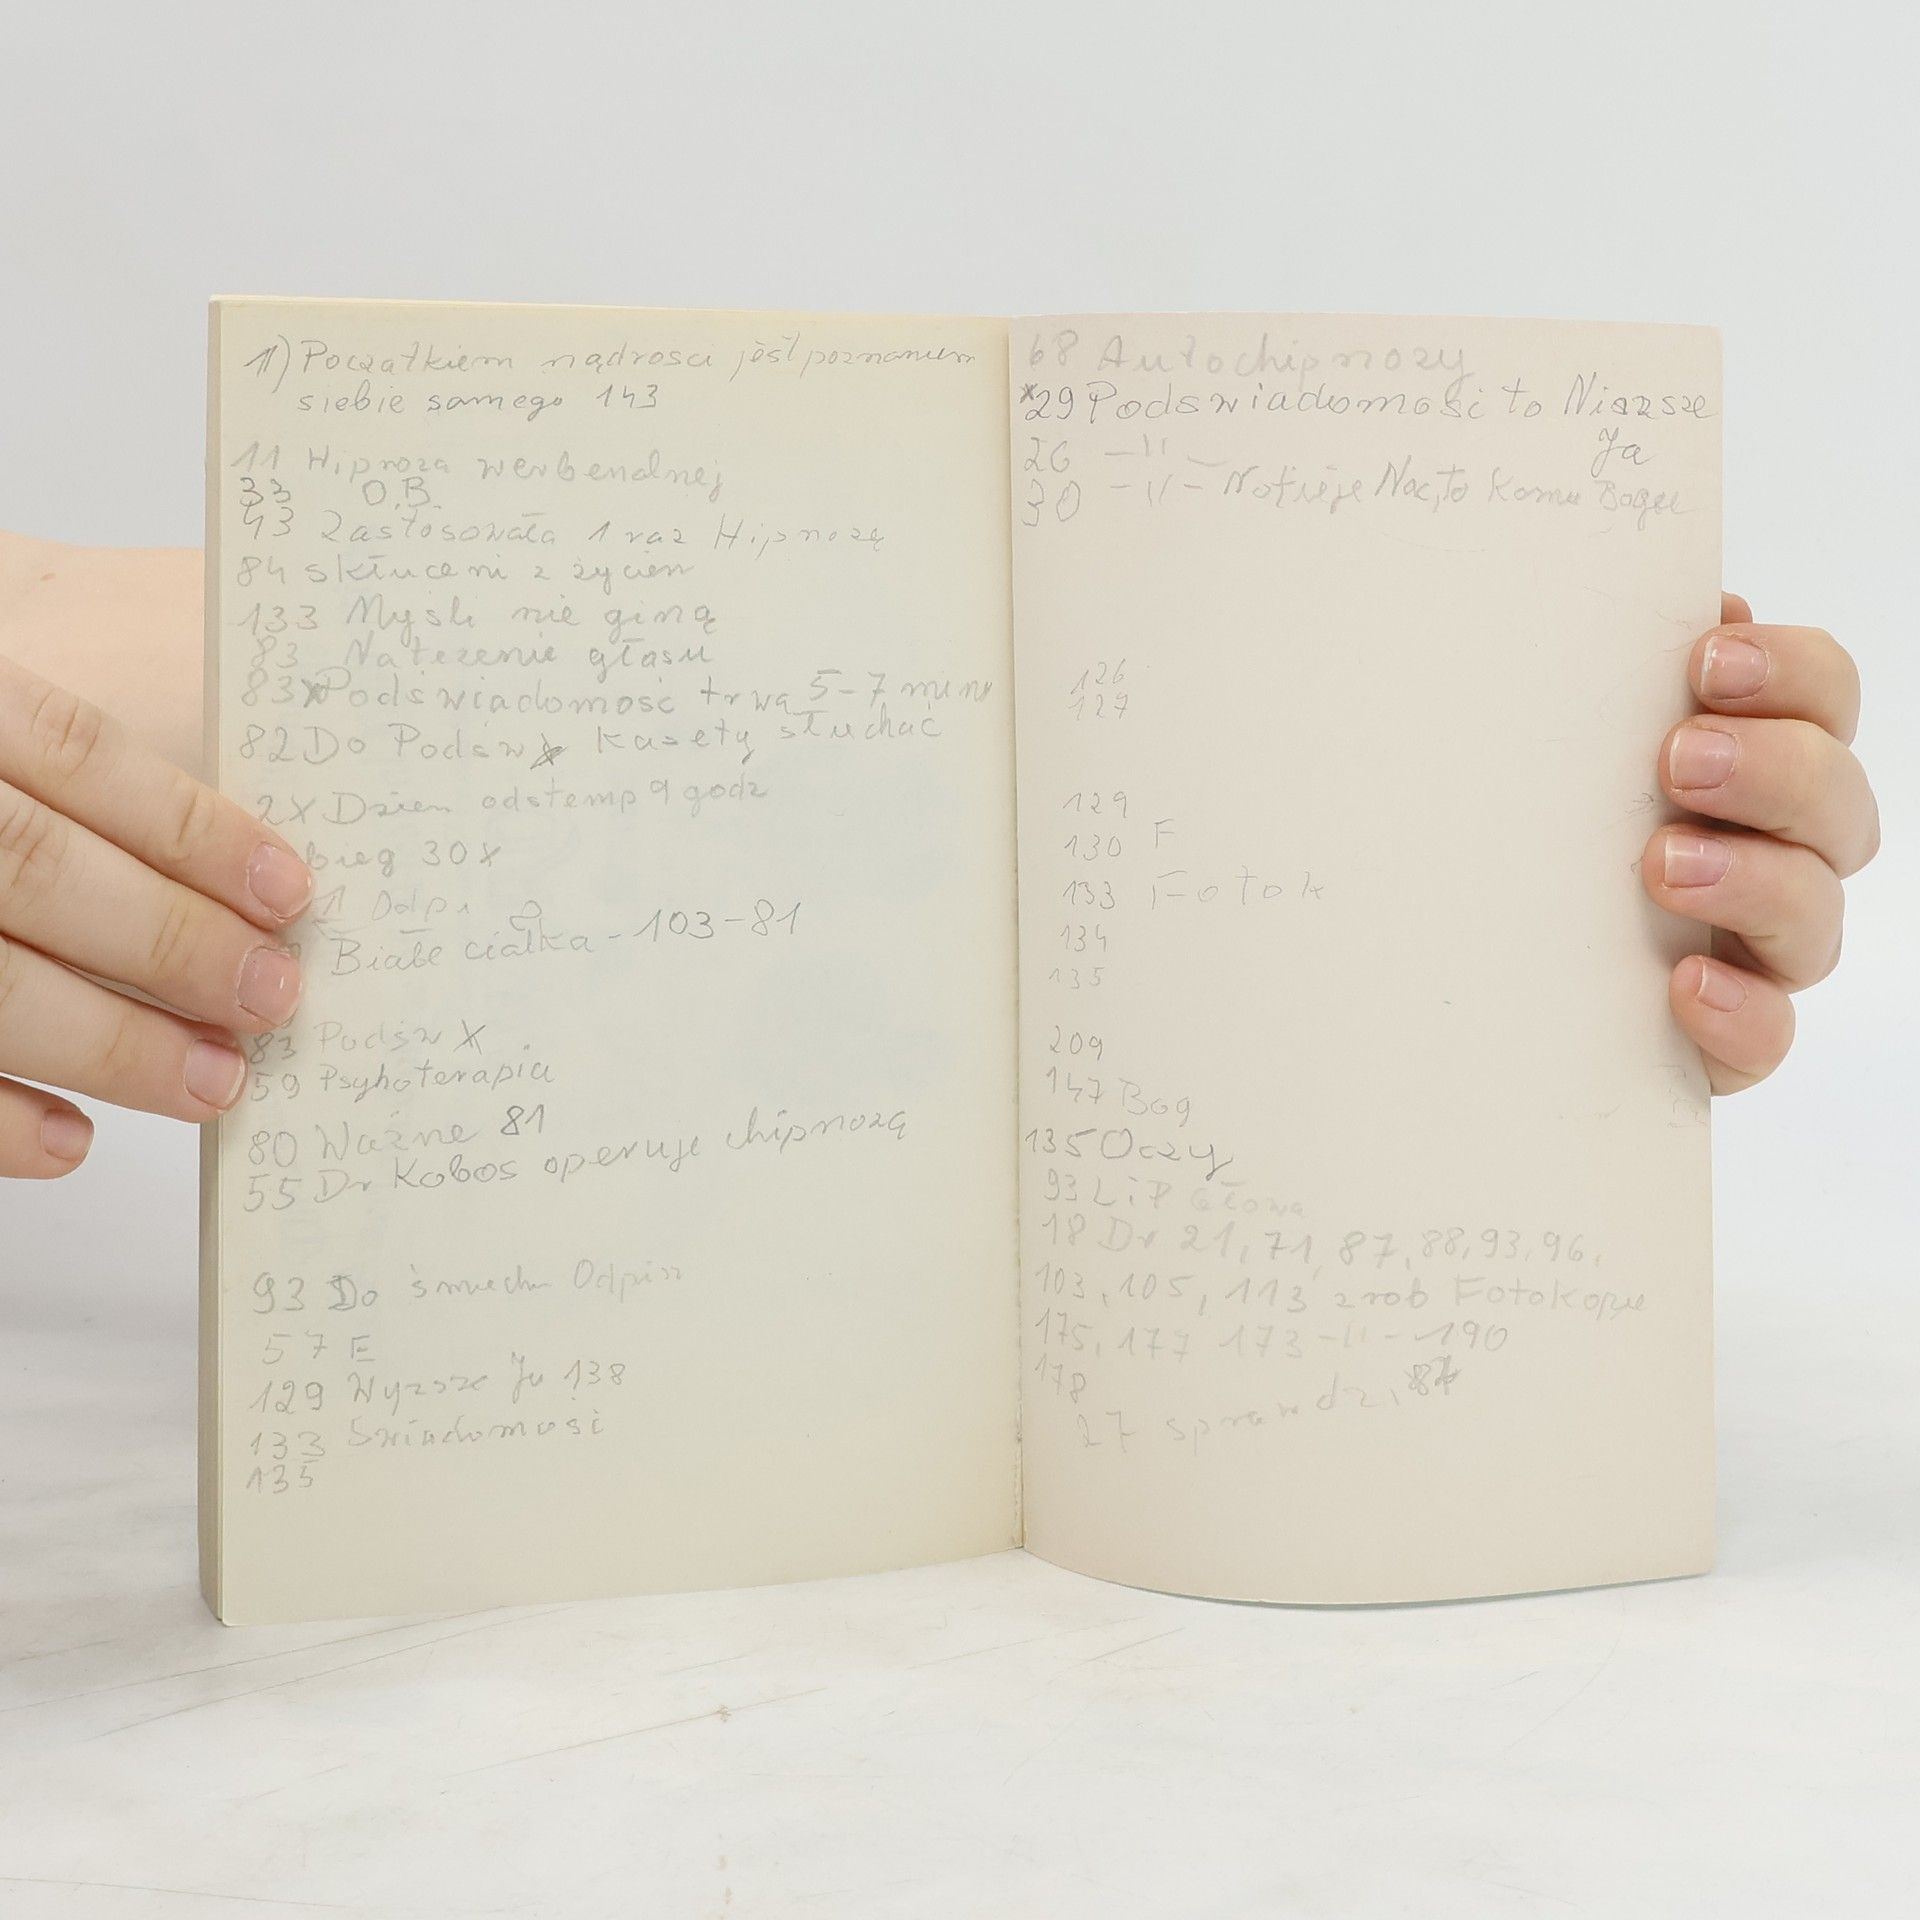 1) Początkiem mądrosci jest poznaniem
siebie samego 143
11 Hipnoza werbenalnej
33 O.B.
43 Zastosowała 1 raz Hipnozę
84 skłuceni z życiem
133 Myśli nie giną
83 Natezenie głosu
83x Podświadomość trwa 5-7 minu
82 Do Podśw x kasety słuchać
2x Dzien odstemp 9 godz
bieg 30x
1 Odpi
Białe ciałka - 103-81
83 Podśw x
59 Psyhoterapia
80 Ważne 81
55 Dr Kobos operuje chipnozą
93 Do śmiechu Odpisz
57 E
129 Wyzsze Ja 138
133 Swiadomości
135
68 Autochipnozy
x29 Podswiadomości to Niszsze
Ja
26 -11-
30 -11- Noc, to
126
127
129
130 F
133 Fotok
134
135
209
147 Bog
135 Oczy
93 LiP Głowa
18 Dr 21, 71, 87, 88, 93, 96.
103, 105, 113 zrob Fotokopie
175, 177 173 -11- 190
178
27 sprawdz,